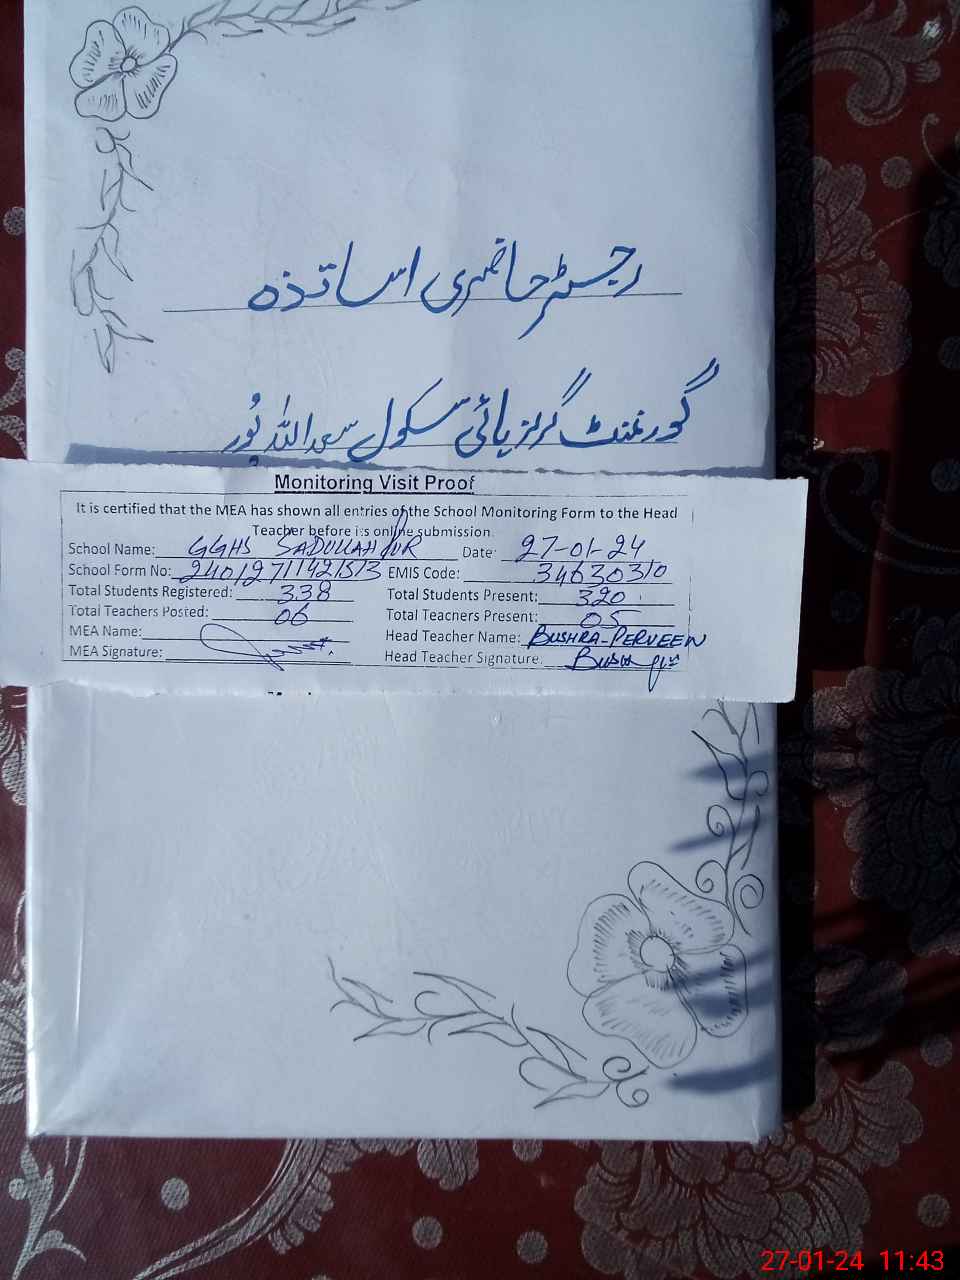 رجسٹر حاضری اساتذہ
گورنمنٹ گرلز ہائی سکول سعد اللہ پُور
Monitoring Visit Proof
It is certified that the MEA has shown all entries of the School Monitoring Form to the Head
Teacher before its online submission.
School Name: GGHS SADULLAHPUR Date: 27-01-24
School Form No: EMIS Code: 34630310
Total Students Registered: 338 Total Students Present: 320
Total Teachers Posted: 06 Total Teachers Present: 05
MEA Name: Head Teacher Name: BUSHRA-PERVEEN
MEA Signature: Head Teacher Signature.
27-01-24 11:43